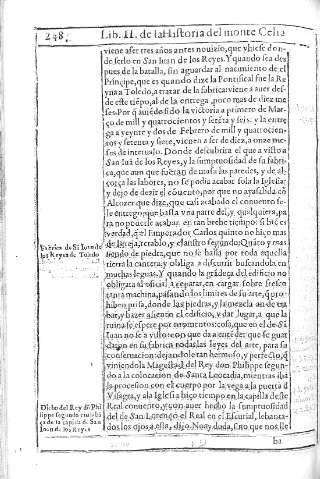 248. Lib. II. de la Historia del monte Celia
viene a ser tres años antes nouizio, que yhiese don-
de serlo en San Iuan de los Reyes. Y quando sea des
pues de la batalla, sin aguardar al nacimiento de el
Principe, que es quando dize la Pontifical fue la Re
yna a Toledo, a tratar de la fabrica viene a auer des-
de este tiẽpo, al de la entrega, poco mas de diez me
ses. Por q̃ auiẽdo sido la victoria a primero de Mar-
ço de mill y quatrocientos y setẽta y seis, y la entre
ga a veynte y dos de Febrero de mill y quatrocien-
tos y setenta y siete, vienen a ser de diez, a onze me-
ses de interualo. Donde descubrira el que a visto a
San Iuã de los Reyes, y la sumptuosidad de su fabri-
ca, que aun que fueran de masa las paredes, y de al-
corça las labores, no se podia acabar sola la Iglesia:
y dejo de dezir el cõuento, por que no ayuda
Alcozer que dize, que casi acabado el conuento se-
le entrego: que basta vna parte del, y qualquiera, pa
ra no poderse acabar, en tan breue tiempo: si biẽ es
verdad, q̃ el Emperador Carlos quinto no hiço mas
Fabrica de Sã Iuan de la reja, retablo, y claustro segundo: Quãto y mas
los Reyes de Toledo siendo de piedra, que no se halla por toda aquella
tierra la contera: y obliga a discurrir buscandola en
muchas leguas, Y quando la grãdeça del edificio no
obligara al oficial, a reparar, en cargar sobre fresco
tanta machina, pasando los limites de su arte, q̃ pro-
hiben prisa, donde ay piedras, y la mezcla an de tra
bar, y hazer asiento el edificio, y dar lugar, a que la
ruina se espere por momentos: cosa, que en el de Sã
Iuan no se a visto: con que da a entender que se guar
daron en su fabrica todas las leyes del arte, para su
conseruacion: dejandole tan hermoso, y perfecto, q̃
viniendo la Magestad del Rey don Philippe segun-
do a la colocacion de Santa Leocadia, mientras iba
la procession con el cuerpo por la vega a puerta d
Visagra, y a la Iglesia hiço tiempo en la capilla deste
Dicho del Rey dõ Phi Real conuento, y con auer hecho la sumptuosidad
lippe segundo en alabã del de San Lorenço el Real en el Escurial, lebantan-
ça de la capilla de San dos los ojos a esta, dijo. No ay duda, sino que nos lle
Iuan de los Reyes
ba